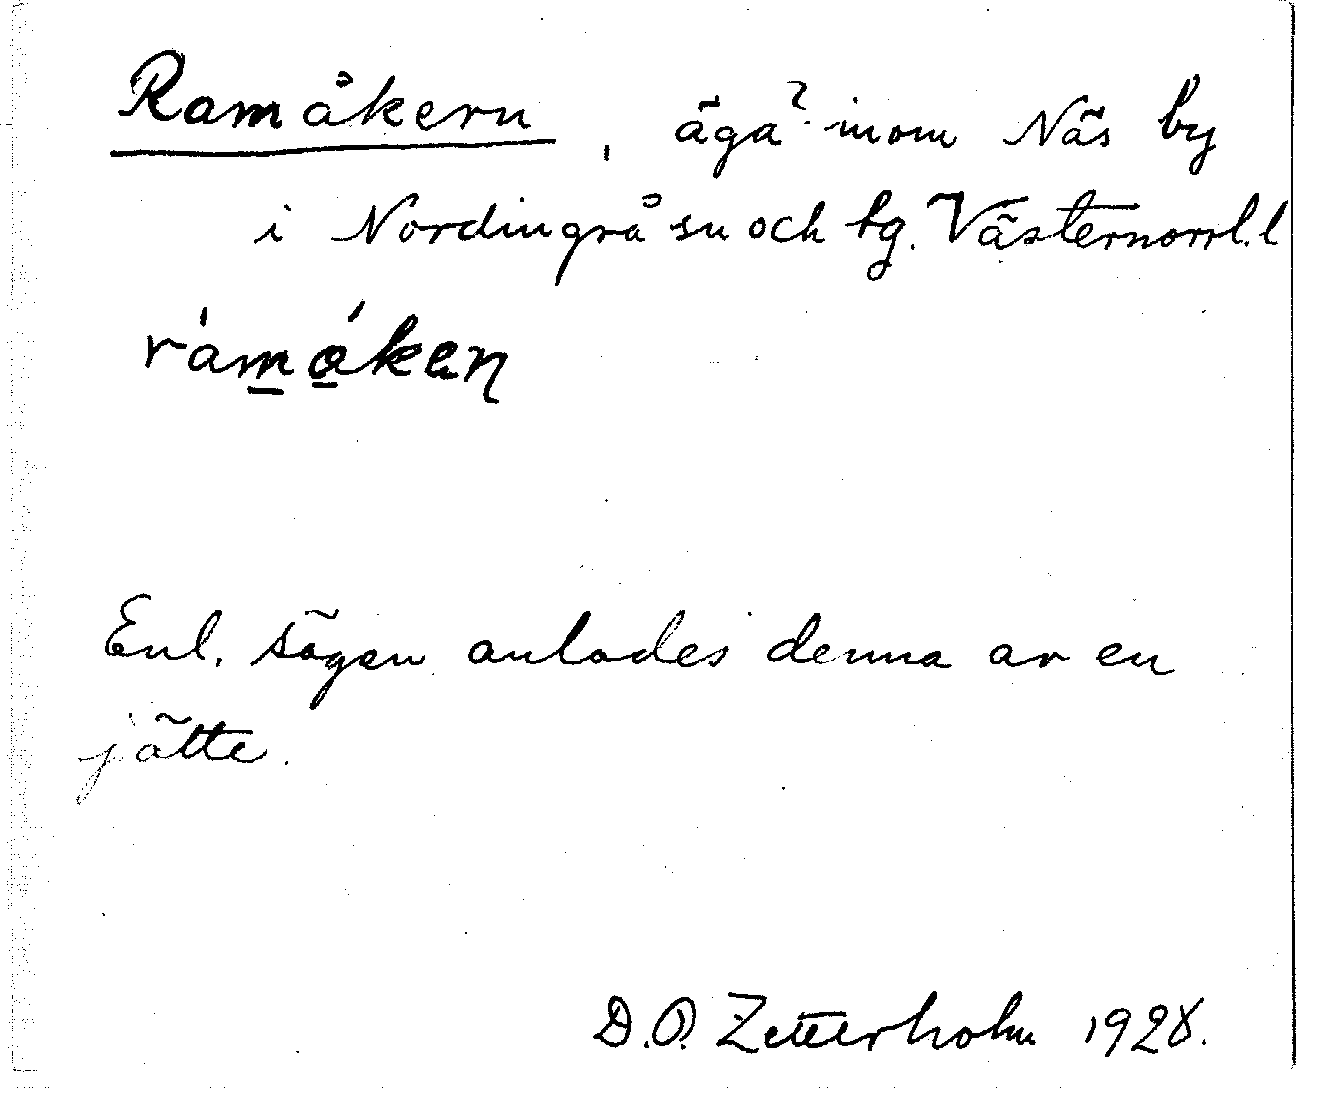 Ramåkern, äga? inom Näs by
i Nordingrå sn och tg. Västernorrl. l
ramåken
Enl. sägen anlades denna av en
jätte.
D.O. Zetterholm 1928.